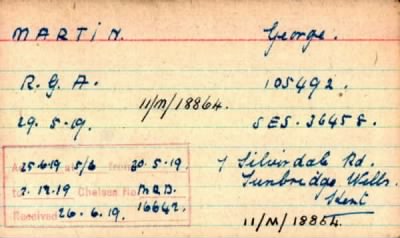 MARTIN. George.
R.G.A. 105492.
11/M/18864.
29.5.19. SES.36458.
25.6.19 5/6 from 30.5.19.
7 Silverdale Rd.
to 2.12.19 Chelsea No M.2D.
Tunbridge Wells.
16642.
Kent
Received 26.6.19.
11/M/18864.